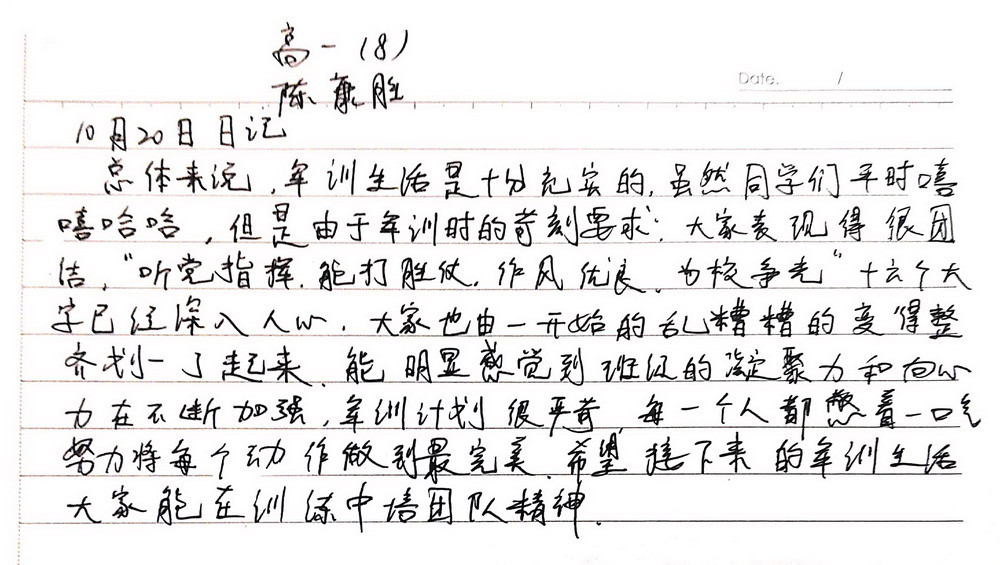 高一(8)
陈康胜
Date. /
10月20日日记
总体来说,军训生活是十分充实的,虽然同学们平时嘻
嘻哈哈,但是由于军训时的苛刻要求,大家表现得很团
结,"听党指挥,能打胜仗,作风优良,为校争光"十六个大
字已经深入人心,大家也由一开始的乱糟糟的变得整
齐划一了起来,能明显感觉到班级的凝聚力和向心
力在不断加强,军训计划很严苛,每一个人都憋着一口气
努力将每个动作做到最完美,希望接下来的军训生活
大家能在训练中培团队精神.